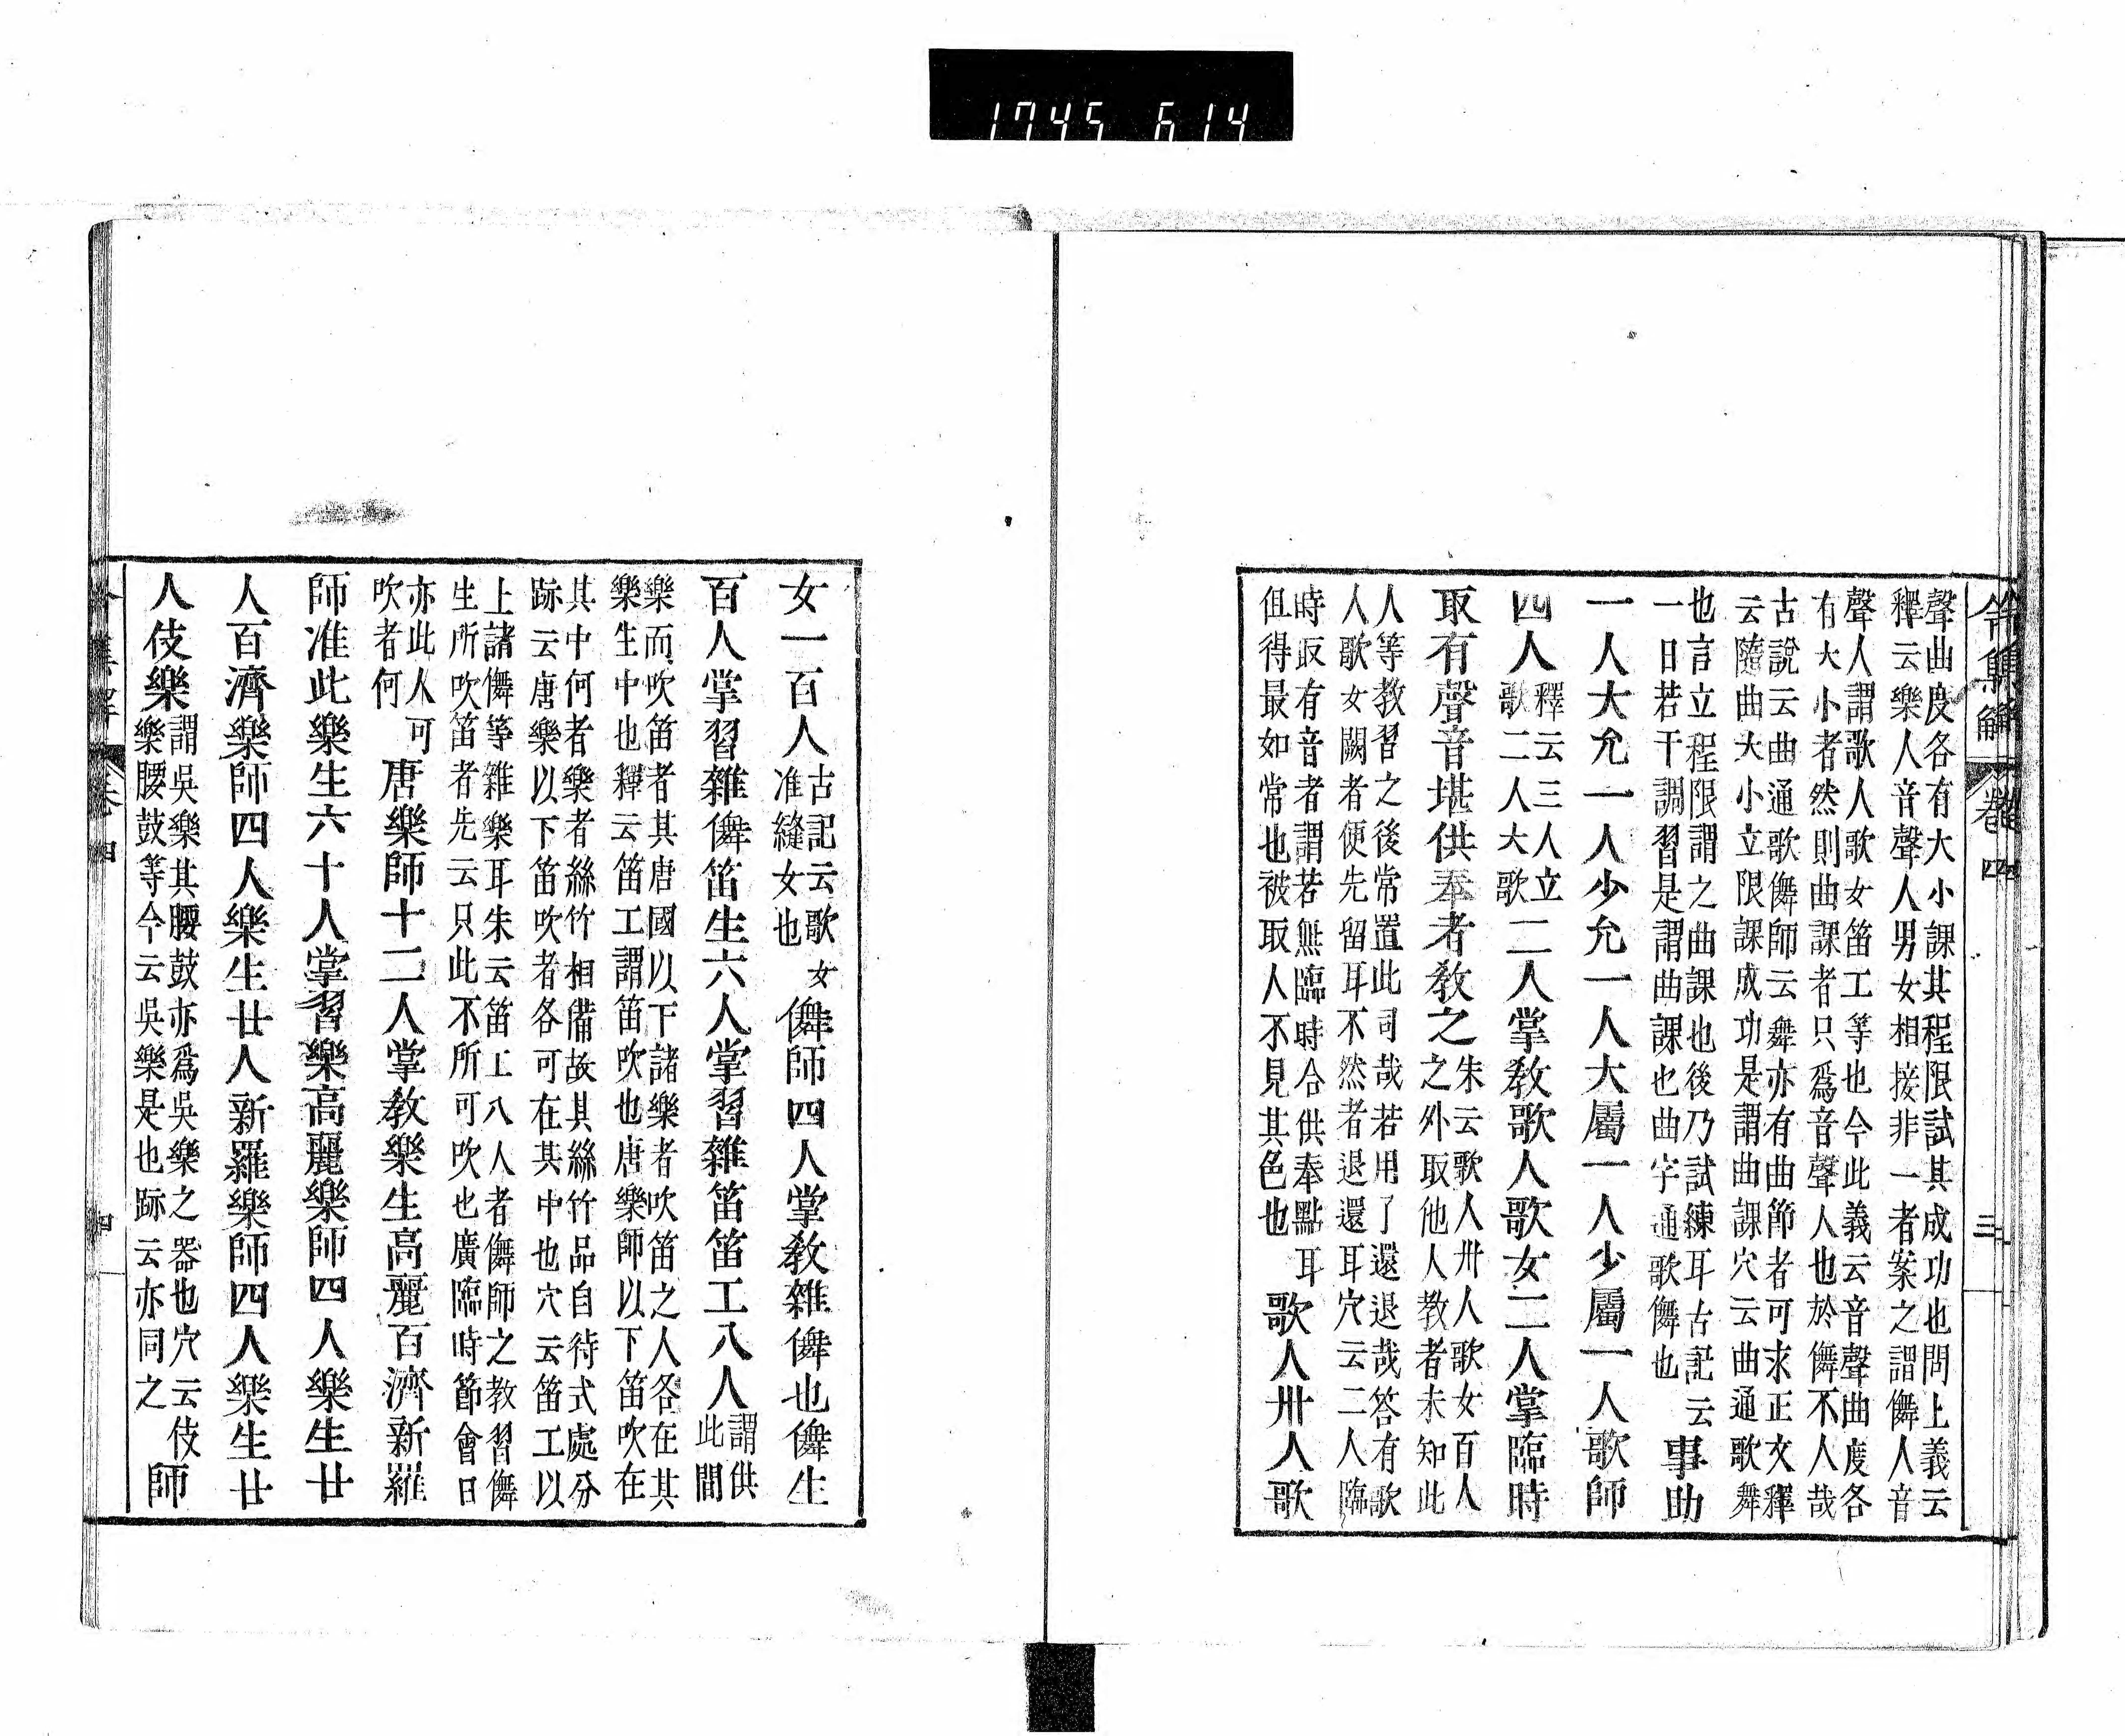 1745 614
令集解 卷四 三
聲曲度各有大小課其程限試其成功也問上義云
釋云樂人音聲人男女相接非一者案之謂儛人音
聲人謂歌人歌女笛工等也今此義云音聲曲度各
有大小者然則曲課者只爲音聲人也於儛不人哉
古說云曲通歌儛師云舞亦有曲節者可求正文釋
云隨曲大小立限課成功是謂曲課穴云曲通歌舞
也言立程限謂之曲課也後乃試練耳古記云
一日若干調習是謂曲課也曲字通歌儛也
事助
一人大允一人少允一人大屬一人少屬一人歌師
四人
釋云三人立
歌二人大歌
二人掌教歌人歌女二人掌臨時
取有聲音堪供奉者教之
朱云歌人卅人歌女百人
之外取他人教者未知此
人等教習之後常置此司哉若用了還退哉答有歌
人歌女闕者便先留耳不然者退還耳穴云二人臨
時取有音者謂若無臨時合供奉點耳
但得最如常也被取人不見其色也
歌人卅人歌
女一百人
古記云歌女
准縫女也
儛師四人掌教雜儛也儛生
百人掌習雜儛笛生六人掌習雜笛笛工八人
謂供
此間
樂而吹笛者其唐國以下諸樂者吹笛之人各在其
樂生中也釋云笛工謂笛吹也唐樂師以下笛吹在
其中何者樂者絲竹相備故其絲竹品自待式處分
跡云唐樂以下笛吹者各可在其中也穴云笛工以
上諸儛等雜樂耳朱云笛工八人者儛師之教習儛
生所吹笛者先云只此不所可吹也廣臨時節會日
亦此人可
吹者何
唐樂師十二人掌教樂生高麗百濟新羅
師准此樂生六十人掌習樂高麗樂師四人樂生廿
人百濟樂師四人樂生廿人新羅樂師四人樂生廿
人伎樂
謂吳樂其腰鼓亦爲吳樂之器也穴云伎
樂腰鼓等今云吳樂是也跡云亦同之
師
卷四 四